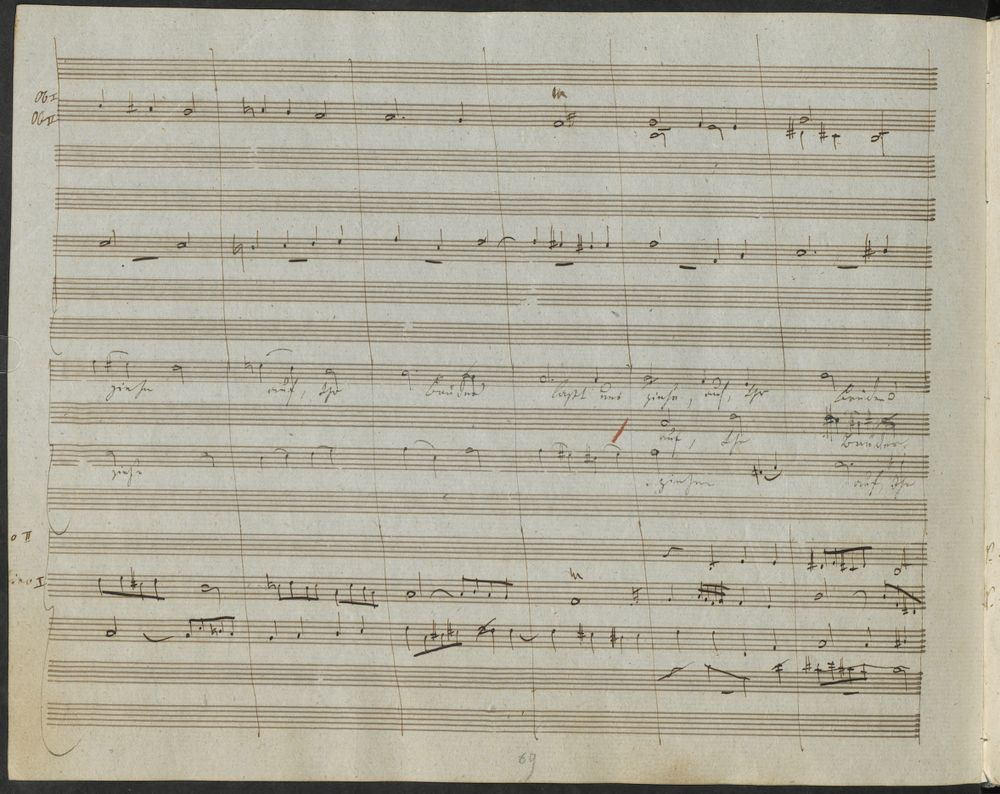 Ob I
Ob II
ziehn auf, Ihr Brüder laßt uns ziehn, auf, Ihr Brüder
auf, Ihr Brüder,
ziehn ziehn auf, Ihr
II
I
69